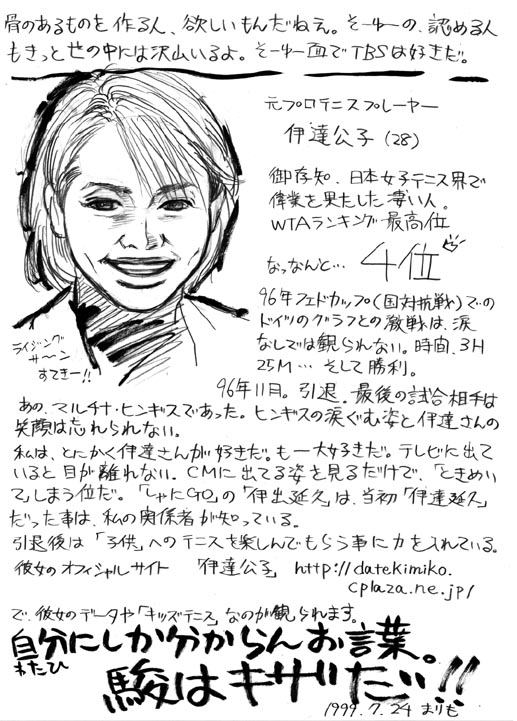 骨のあるものを作る人、欲しいもんだねえ。そーゆーの、認める人
もきっと世の中には沢山いるよ。そーゆー面でTBSは好きだ。
元プロテニスプレーヤー
伊達公子(28)
御存知、日本女子テニス界で
偉業を果たした凄い人。
WTAランキング最高位
なっなんと… 4位
96年フェドカップ(国対抗戦)での
ドイツのグラフとの激戦は、涙
なしでは観られない。時間、3H
25M… そして勝利。
ライジング
サ〜ン
すてきー!!
96年11月。引退。最後の試合相手は
あの、マルチナ・ヒンギスであった。ヒンギスの涙ぐむ姿と伊達さんの
笑顔は忘れられない。
私は、とにかく伊達さんが好きだ。も一大好きだ。テレビに出て
いると目が離れない。CMに出てる姿を見るだけで、「ときめい
てしまう位だ。「しゃにGO」の「伊出延久」は、当初「伊達延久」
だった事は、私の関係者が知っている。
引退後は「子供」へのテニスを楽しんでもらう事に力を入れている。
彼女のオフィシャルサイト 「伊達公子」 http://datekimiko.
cplaza.ne.jp/
で、彼女のデータや「キッズテニス」なのが観られます。
自分にしか分からんお言葉。
わたひ
駿はキザだい!!
1999.7.24 まりも